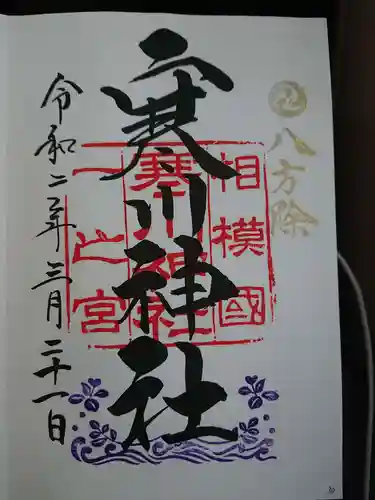 八方除
寒川神社
相模國
寒川神社
一之宮
令和二年三月二十一日